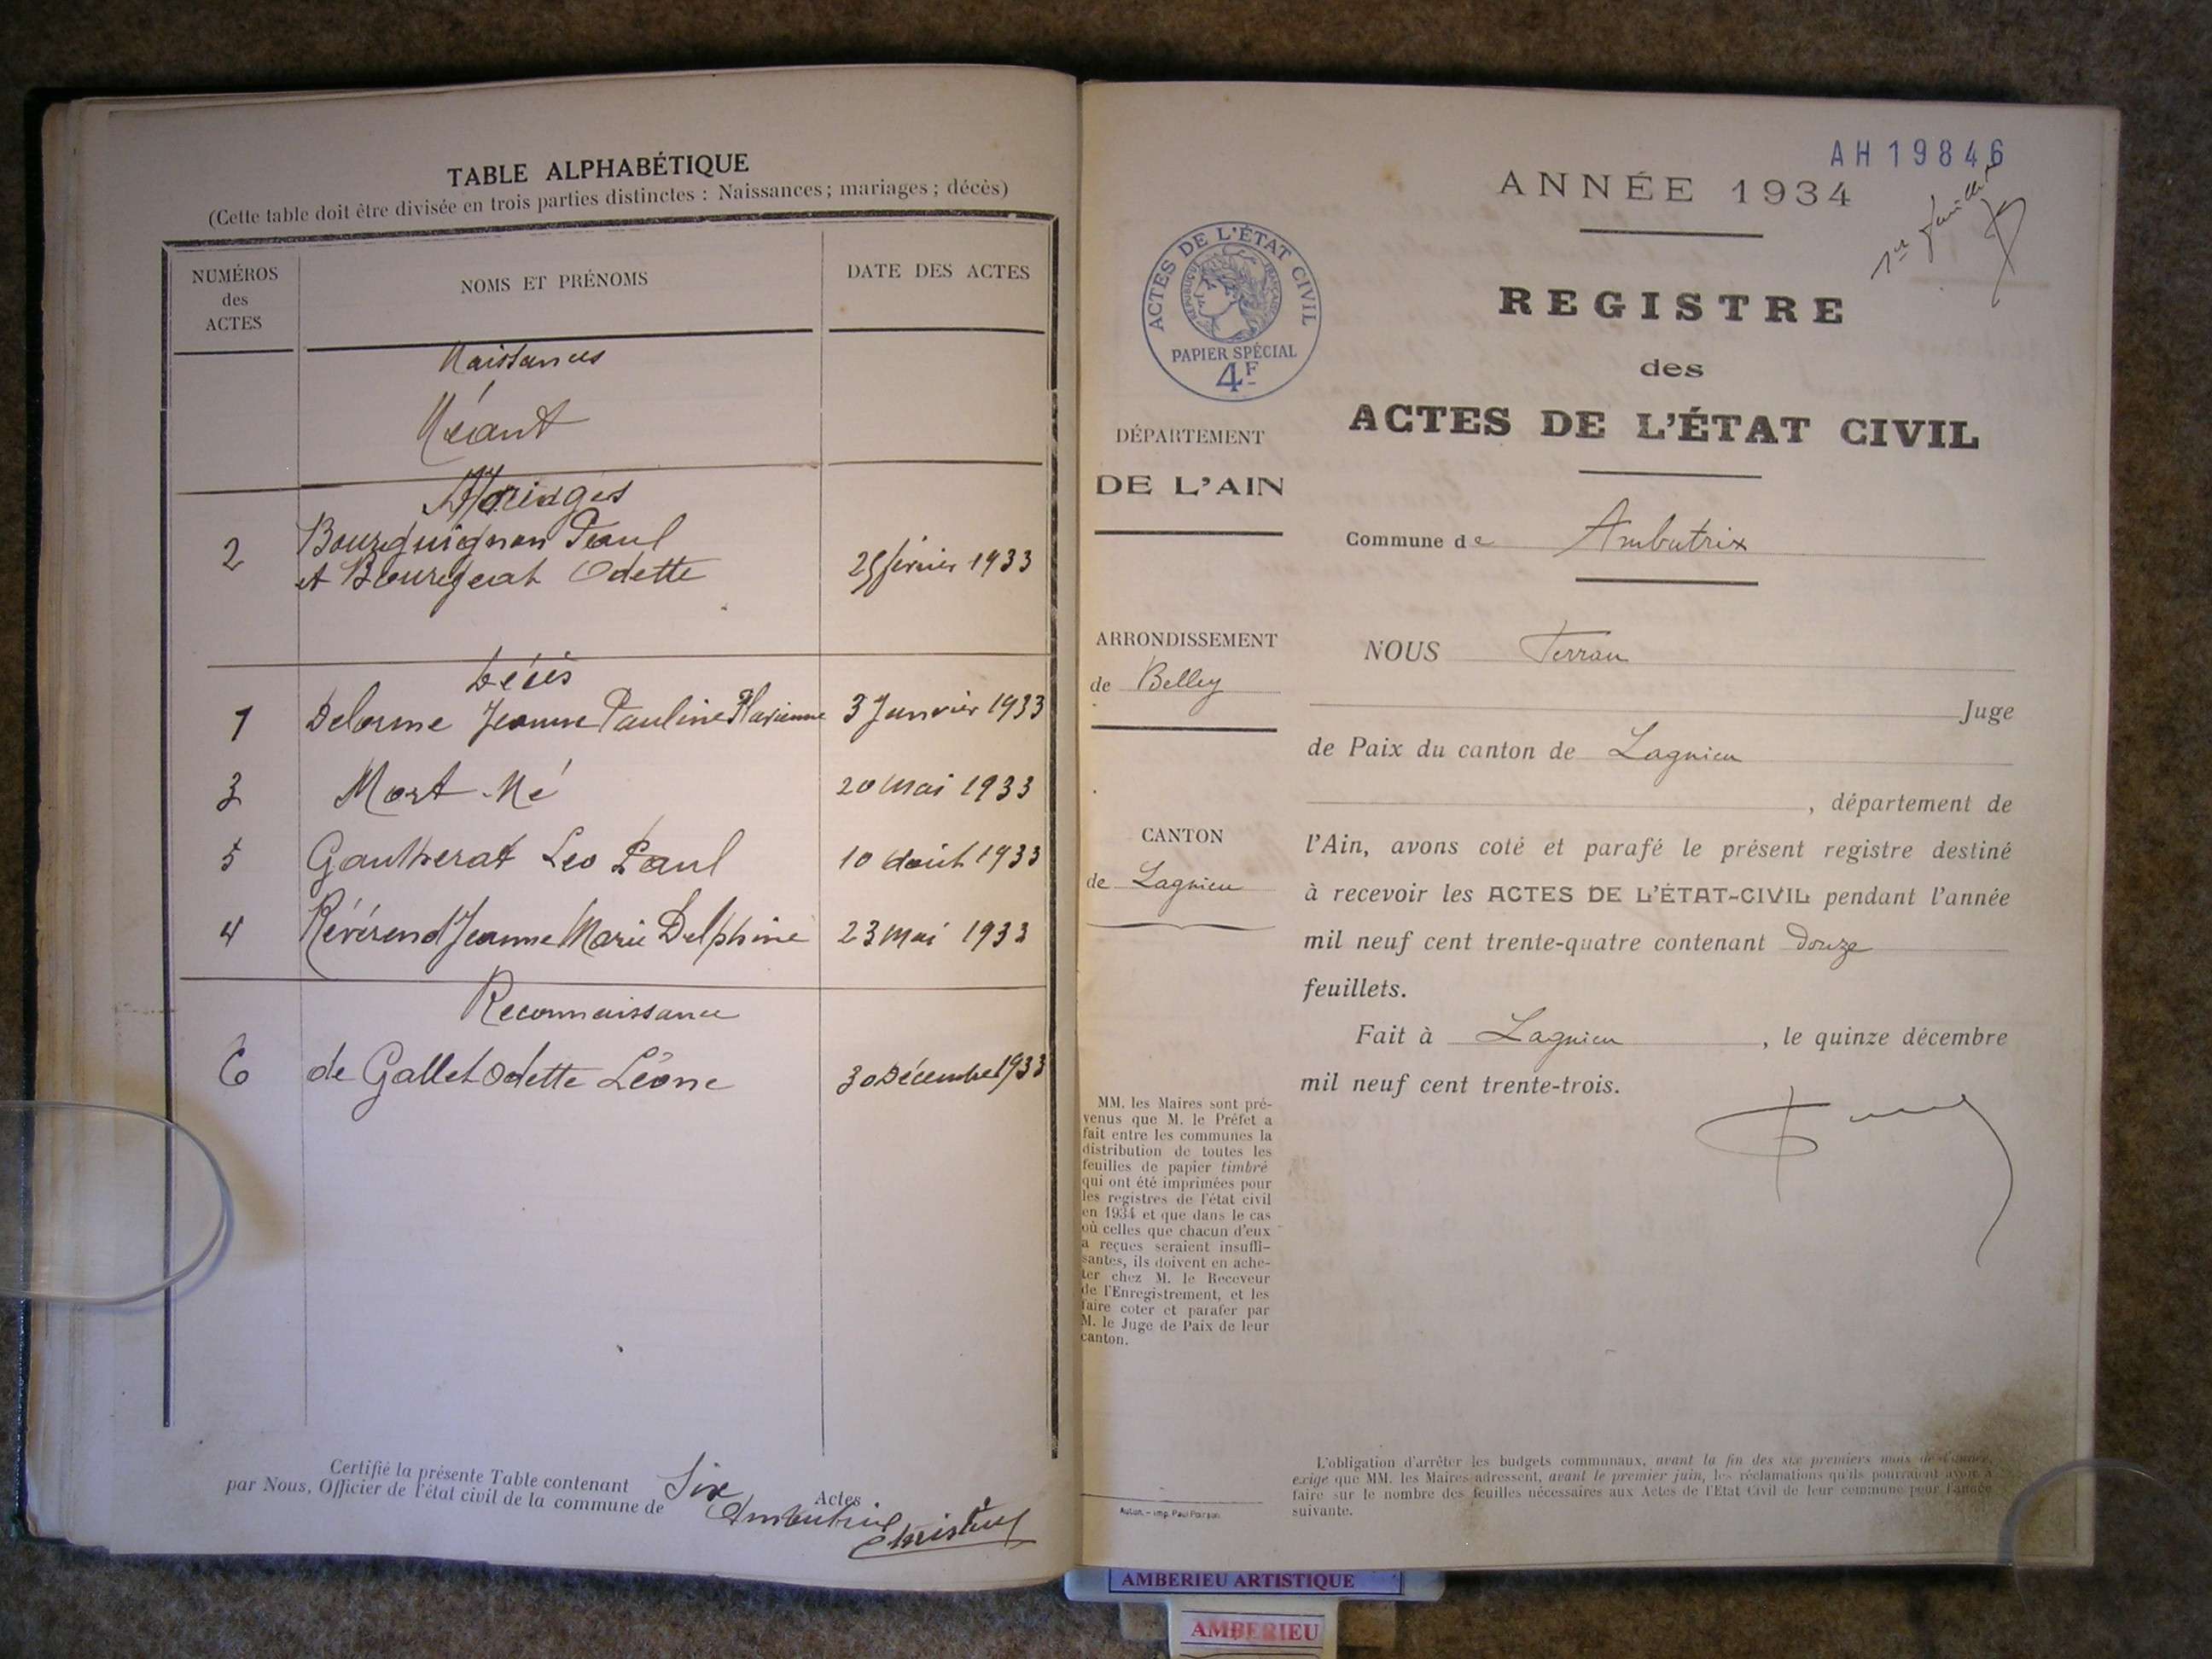 TABLE ALPHABÉTIQUE
(Cette table doit être divisée en trois parties distinctes : Naissances ; mariages ; décès)
NUMÉROS
des
ACTES
NOMS ET PRÉNOMS
DATE DES ACTES
Naissances
Néant
Mariages
2 Bourguignon Paul
et Bourgeat Odette 25 février 1933
Décès
1 Delorme Jeanne Pauline 3 Janvier 1933
3 Mort-Né 20 mai 1933
5 Gautherat Leo Paul 10 Août 1933
4 Révérend Jeanne Marie Delphine 23 Mai 1933
Reconnaissance
6 de Gallet Odette Léone 30 Décembre 1933
Certifié la présente Table contenant Six Actes
par Nous, Officier de l'état civil de la commune de Ambutrix
AH 19846
ANNÉE 1934
1er feuillet
REGISTRE
des
ACTES DE L'ÉTAT CIVIL
ACTES DE L'ÉTAT CIVIL
RÉPUBLIQUE FRANÇAISE
PAPIER SPÉCIAL
4F
DÉPARTEMENT
DE L'AIN
Commune de Ambutrix
ARRONDISSEMENT
de Belley
CANTON
de Lagnieu
NOUS Ferran
Juge
de Paix du canton de Lagnieu
, département de
l'Ain, avons coté et parafé le présent registre destiné
à recevoir les ACTES DE L'ÉTAT-CIVIL pendant l'année
mil neuf cent trente-quatre contenant Douze
feuillets.
Fait à Lagnieu , le quinze décembre
mil neuf cent trente-trois.
MM. les Maires sont pré-
venus que M. le Préfet a
fait entre les communes la
distribution de toutes les
feuilles de papier timbré
qui ont été imprimées pour
les registres de l'état civil
en 1934 et que dans le cas
où celles que chacun d'eux
a reçues seraient insuffi-
santes, ils doivent en ache-
ter chez M. le Receveur
de l'Enregistrement, et les
faire coter et parafer par
M. le Juge de Paix de leur
canton.
L'obligation d'arrêter les budgets communaux, avant la fin des six premiers mois de l'année,
exige que MM. les Maires adressent, avant le premier juin, les réclamations qu'ils pourraient avoir à
faire sur le nombre des feuilles nécessaires aux Actes de l'Etat Civil de leur commune pour l'année
suivante.
AMBERIEU ARTISTIQUE
AMBERIEU